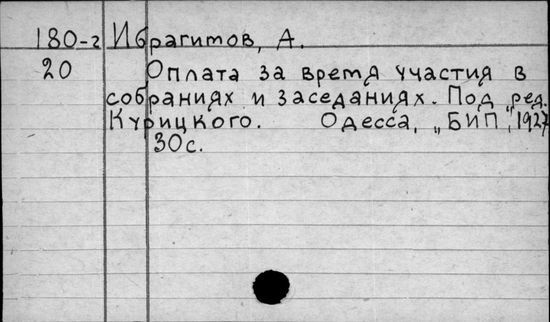 180-г Ибрагимов, А.
20 Оплата за время участия в
собраниях и заседаниях. Под ред.
Курицкого. Одесса, „БИП", 1927
30с.